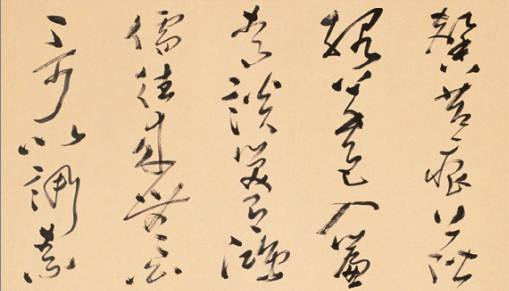 馨苔痕上階
綠草色入簾
青談笑有鴻
儒往來無白
丁可以調素